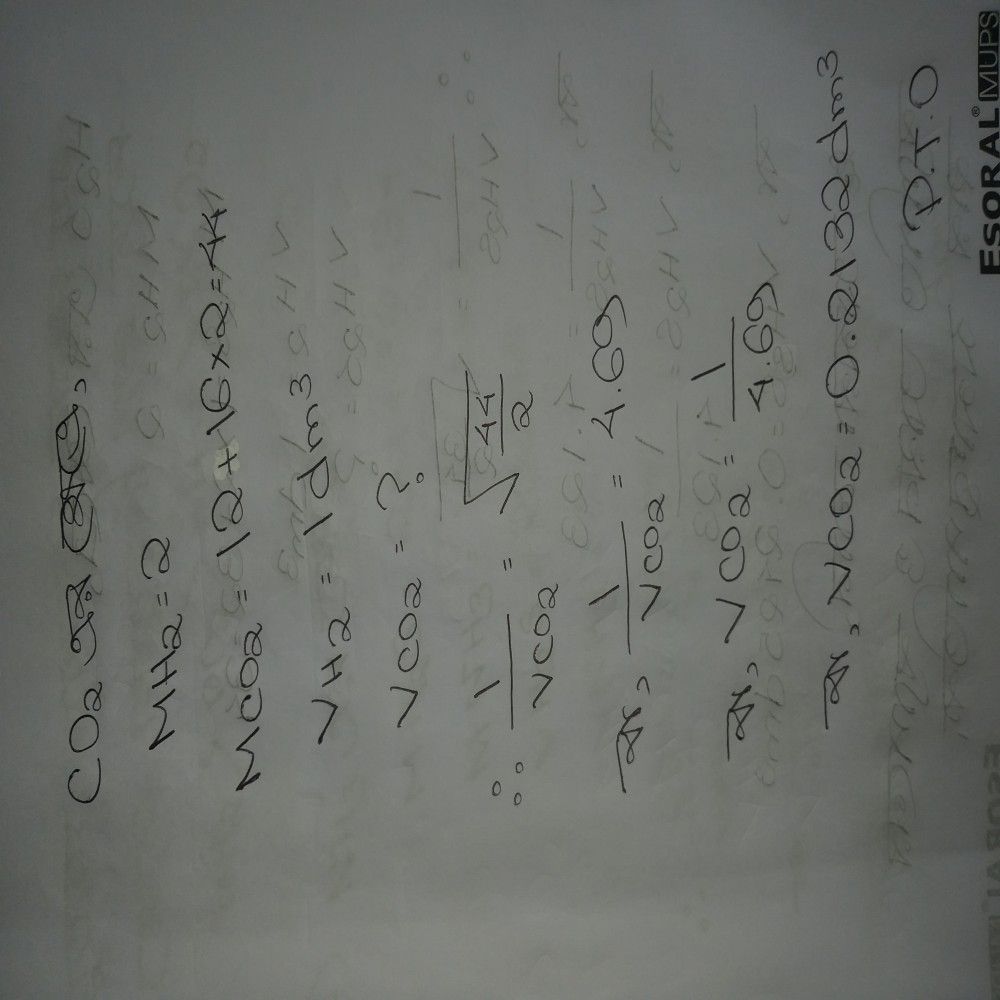 CO2 এর ক্ষেত্রে,
MH2 = 2
MCO2 = 12 + 16 × 2 = 44
VH2 = 1 dm3
VCO2 = ?
∴ 1/VCO2 = √44/2
বা, 1/VCO2 = 4.69
বা, VCO2 = 1/4.69
বা, VCO2 = 0.2132 dm3
P.T.O
ESORAL® MUPS